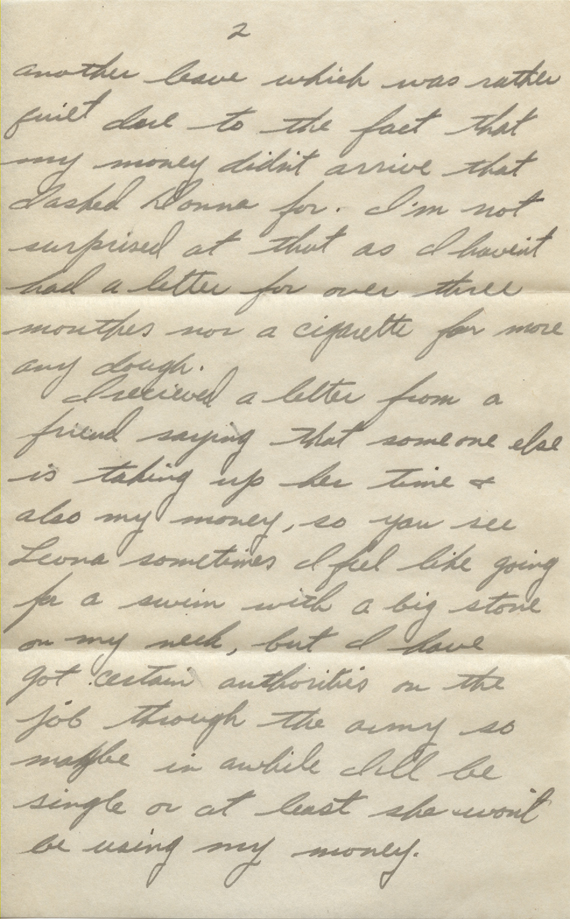 2
another leave which was rather
quiet due to the fact that
my money didn't arrive that
I asked Donna for. I'm not
surprised at that as I havint
had a letter for over three
monthes nor a cigarette far more
any dough.
I recieved a letter from a
friend saying that someone else
is taking up her time &
also my money, so you see
Leona sometimes I feel like going
for a swim with a big stone
on my neck, but I have
got certain authorities on the
job through the army so
maybe in awhile I'll be
single or at least she won't
be using my money.